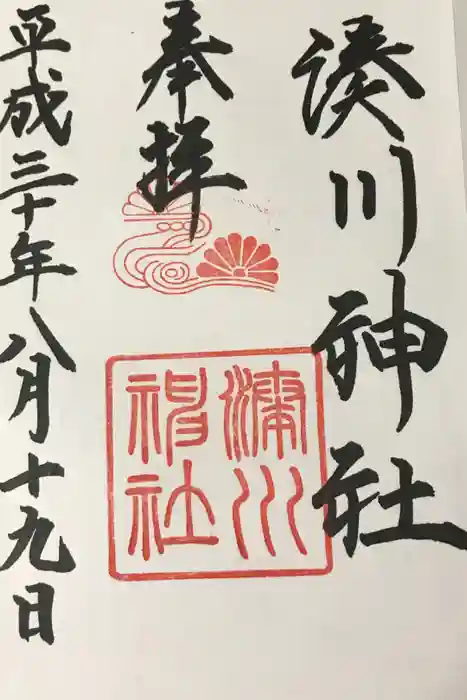 湊川神社
奉拝
湊川神社
平成三十年八月十九日